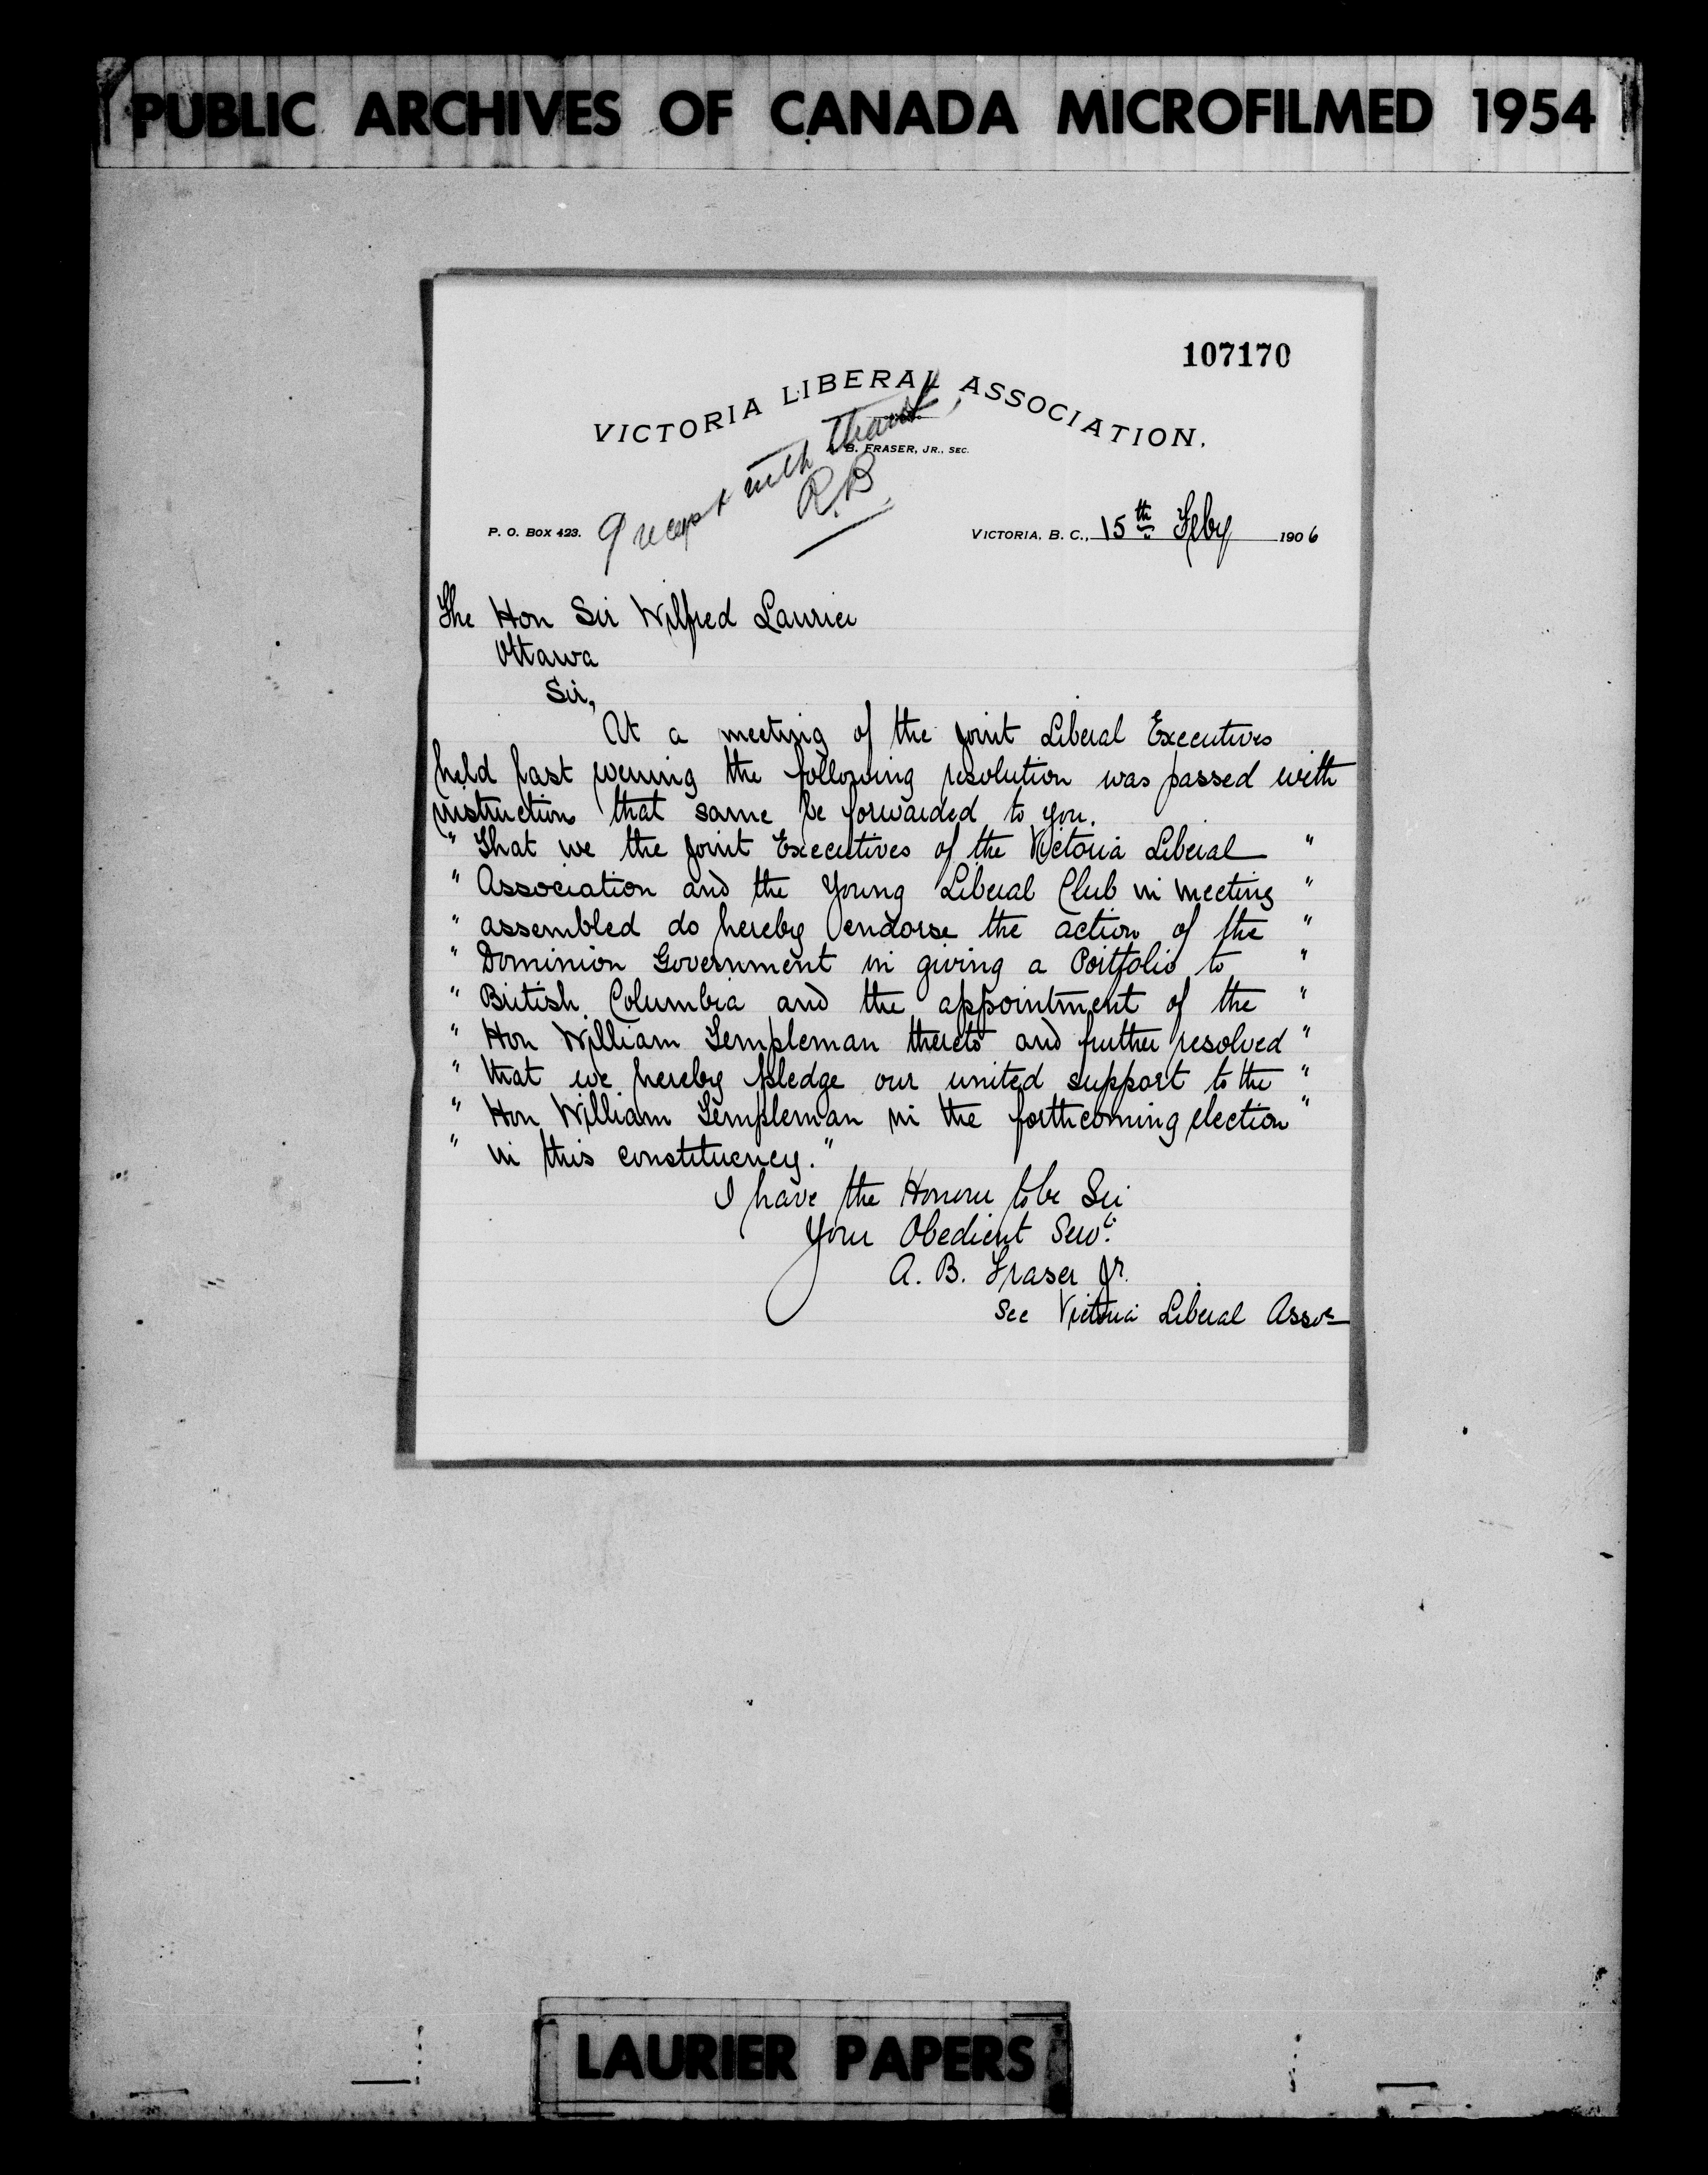 PUBLIC ARCHIVES OF CANADA MICROFILMED 1954
107170
VICTORIA LIBERAL ASSOCIATION.
B. FRASER, JR., SEC.
with thanks
R.B
P. O. BOX 423.
VICTORIA, B. C., 15th Feby 1906
The Hon Sir Wilfred Laurier
Ottawa
Sir,
At a meeting of the joint Liberal Executives
held last evening the following resolution was passed with
instructions that same be forwarded to you.
" That we the joint Executives of the Victoria Liberal "
" Association and the Young Liberal Club in meeting "
" assembled do hereby endorse the action of the "
" Dominion Government in giving a Portfolio to "
" British Columbia and the appointment of the "
" Hon William Templeman thereto and further resolved "
" that we hereby pledge our united support to the "
" Hon William Templeman in the forthcoming election "
" in this constituency."
I have the Honour to be Sir
Your Obedient Servt
A. B. Fraser Jr.
Sec Victoria Liberal Asson
LAURIER PAPERS